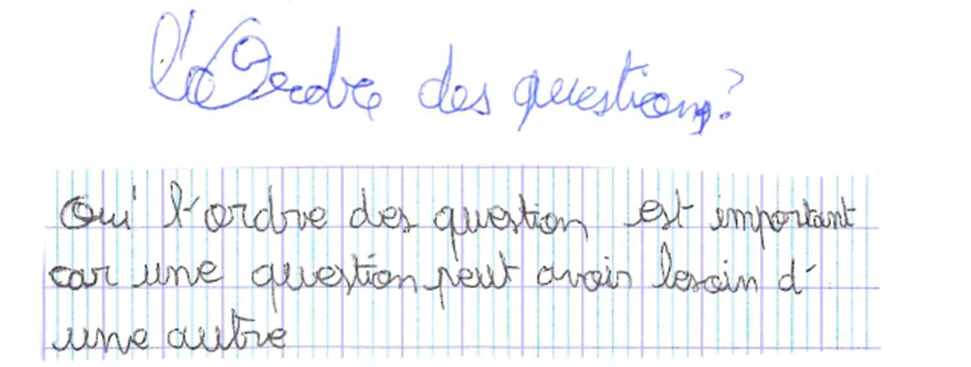 l'Ordre des questions?
Oui l'ordre des question est important
car une question peut avoir besoin d'
une autre